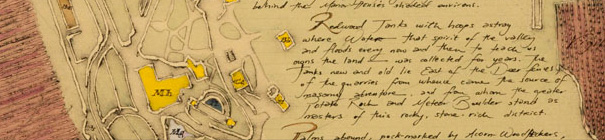 behind the Manor House's shielded environs.
Redwood Tanks with hoops astray
where Water that spirit of the valley
and floods every now and then to teach us
the land was collected for years. The
tanks new and old lie East of the Deer fence
of the quarries from whence came the source of
masonry adventure and from whom the greater
Potato Rock and Meteor Builder stand as
masters of this rocky, stone-rich district.
Palms abound, pock-marked by Acorn Woodpeckers,
Mh
Mq